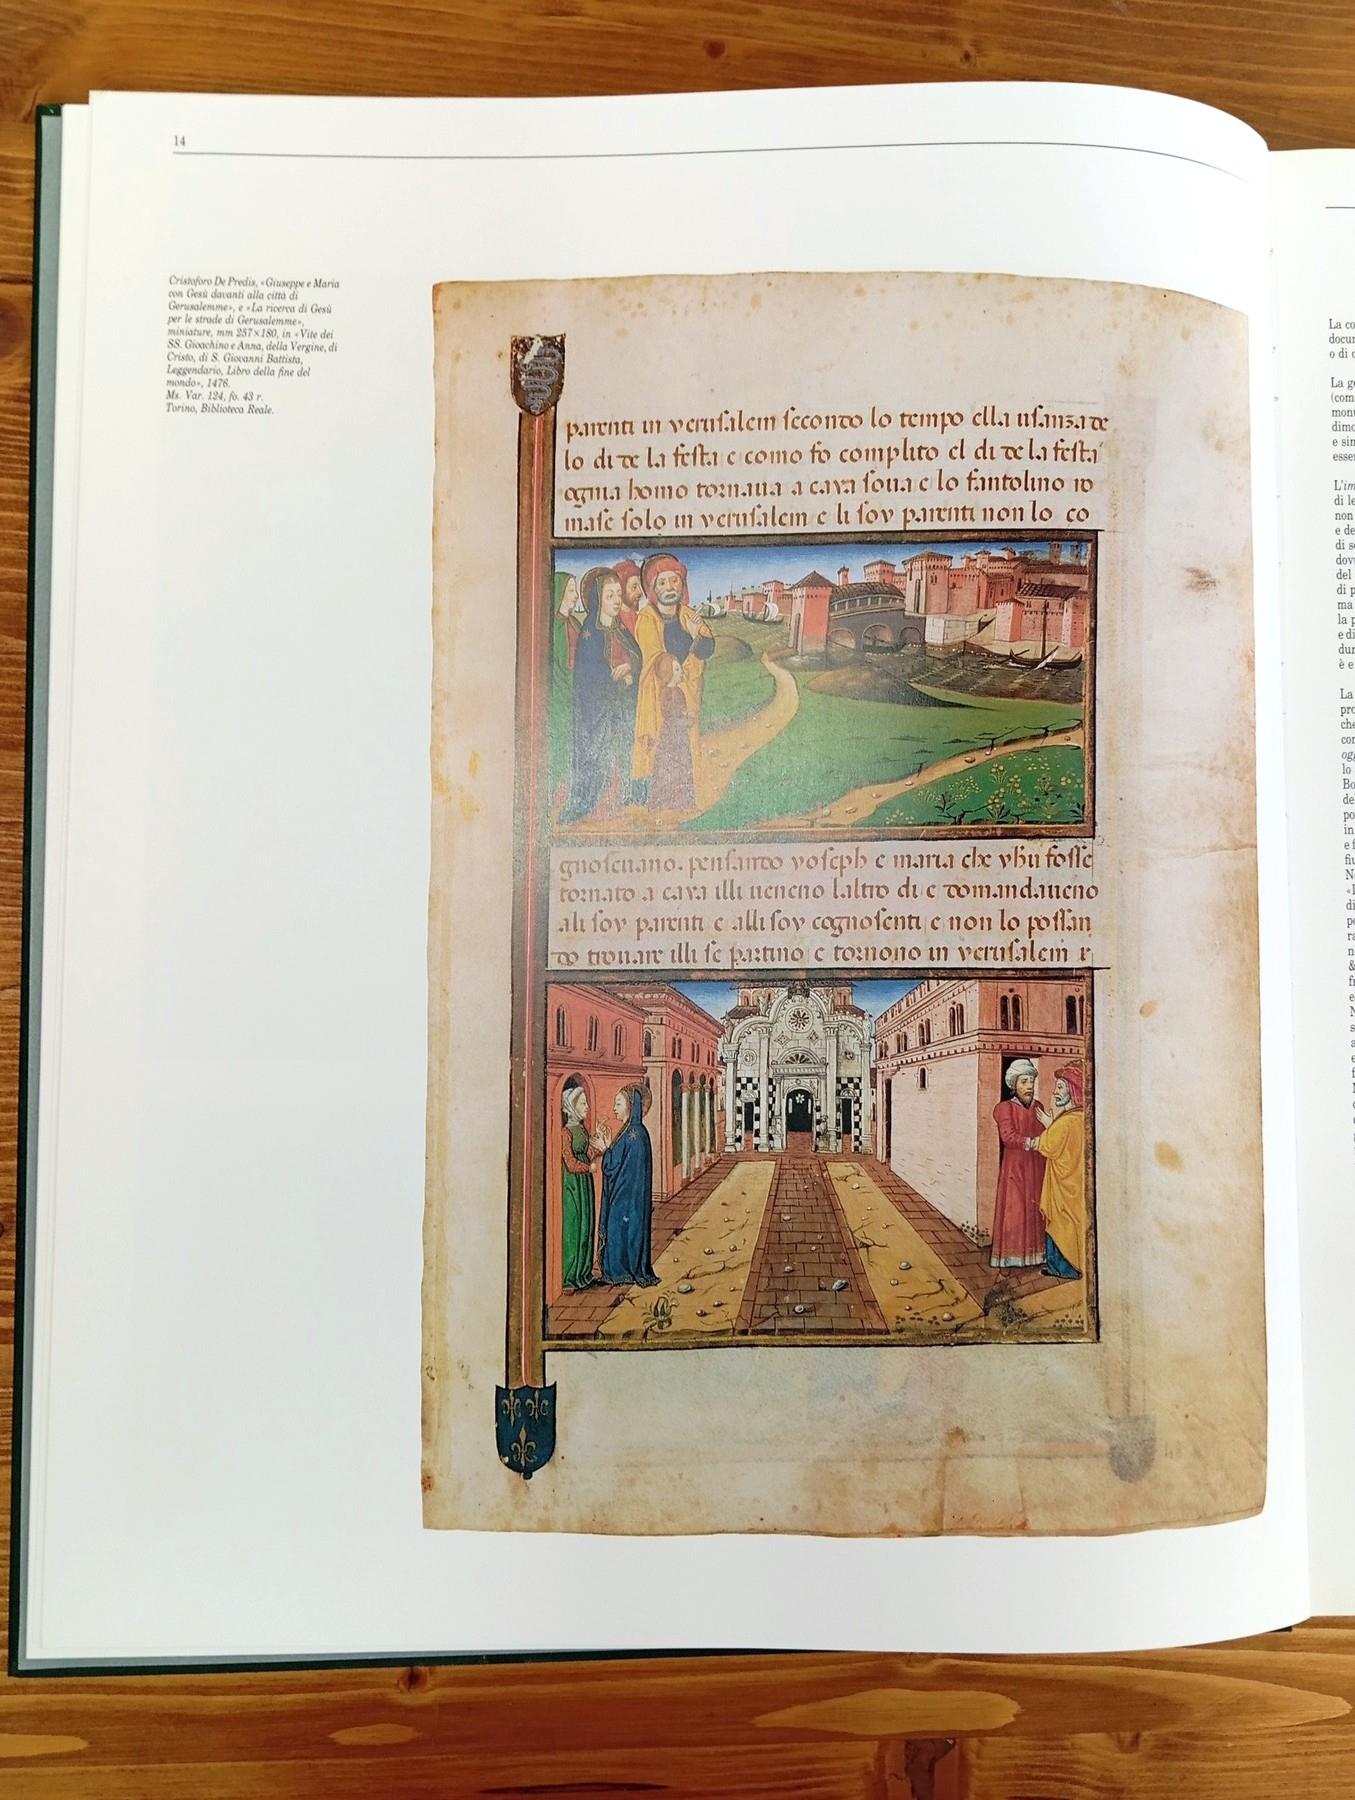 14
Cristoforo De Predis, «Giuseppe e Maria
con Gesù davanti alla città di
Gerusalemme», e «La ricerca di Gesù
per le strade di Gerusalemme»,
miniature, mm 257×180, in «Vite dei
SS. Gioachino e Anna, della Vergine, di
Cristo, di S. Giovanni Battista,
Leggendario, Libro della fine del
mondo», 1476.
Ms. Var. 124, fo. 43 r.
Torino, Biblioteca Reale.
parenti in yerusalem secondo lo tempo ella usanza de
lo di de la festa e como fo complito el di de la festa
ogniа homo tornaua a caxa soua e lo fantolino ro
mase solo in yerusalem e li soy parenti non lo co
gnoseuano. pensando yoseph e maria che yhu fosse
tornato a caxa illi ueneno laltro di e domandaueno
ali soy parenti e alli soy cognosenti e non lo possan
do trouare illi se partino e tornono in yerusalem r
La co
docu
o di
La g
(com
mon
dimo
e sin
esse
L'im
di le
non
e de
di s
dov
del
di p
ma
la p
e di
dur
è e
La
pro
che
con
ogg
lo
Bo
de
po
in
e f
fiu
N
«I
di
pe
ra
n
&
fr
e
N
s
a
e